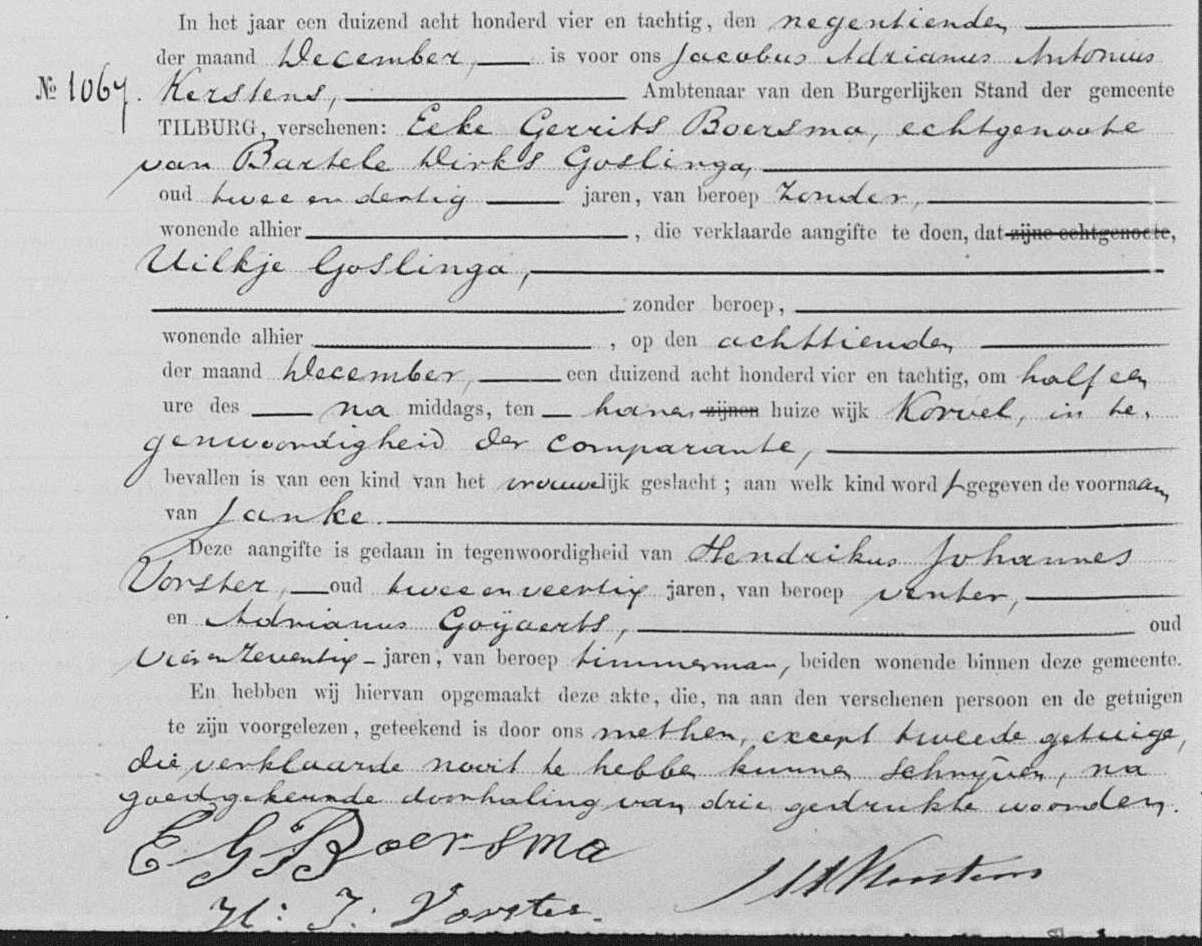 In het jaar een duizend acht honderd vier en tachtig, den negentienden
der maand December, is voor ons Jacobus Adrianus Antonius
№ 1067. Kerstens, Ambtenaar van den Burgerlijken Stand der gemeente
TILBURG, verschenen: Eeke Gerrits Boersma, echtgenoote
van Bartele Dirks Goslinga,
oud twee en dertig jaren, van beroep zonder,
wonende alhier , die verklaarde aangifte te doen, dat zijne echtgenoote,
Uilkje Goslinga,
zonder beroep,
wonende alhier , op den achttienden
der maand December, een duizend acht honderd vier en tachtig, om half een
ure des na middags, ten haren zijnen huize wijk Korvel, in te,
genwoordigheid der comparante,
bevallen is van een kind van het vrouwelijk geslacht; aan welk kind word t gegeven de voornaam
van Janke.
Deze aangifte is gedaan in tegenwoordigheid van Hendrikus Johannes
Vorster, oud twee en veertig jaren, van beroep venter,
en Adrianus Goijaerts, oud
vier en zeventig jaren, van beroep timmerman, beiden wonende binnen deze gemeente.
En hebben wij hiervan opgemaakt deze akte, die, na aan den verschenen persoon en de getuigen
te zijn voorgelezen, geteekend is door ons met hen, except tweede getuige,
die verklaarde nooit te hebben kunnen schrijven, na
goedgekeurde doorhaling van drie gedrukte woorden.
E G Boersma
JAA Kerstens
H: J. Vorster.